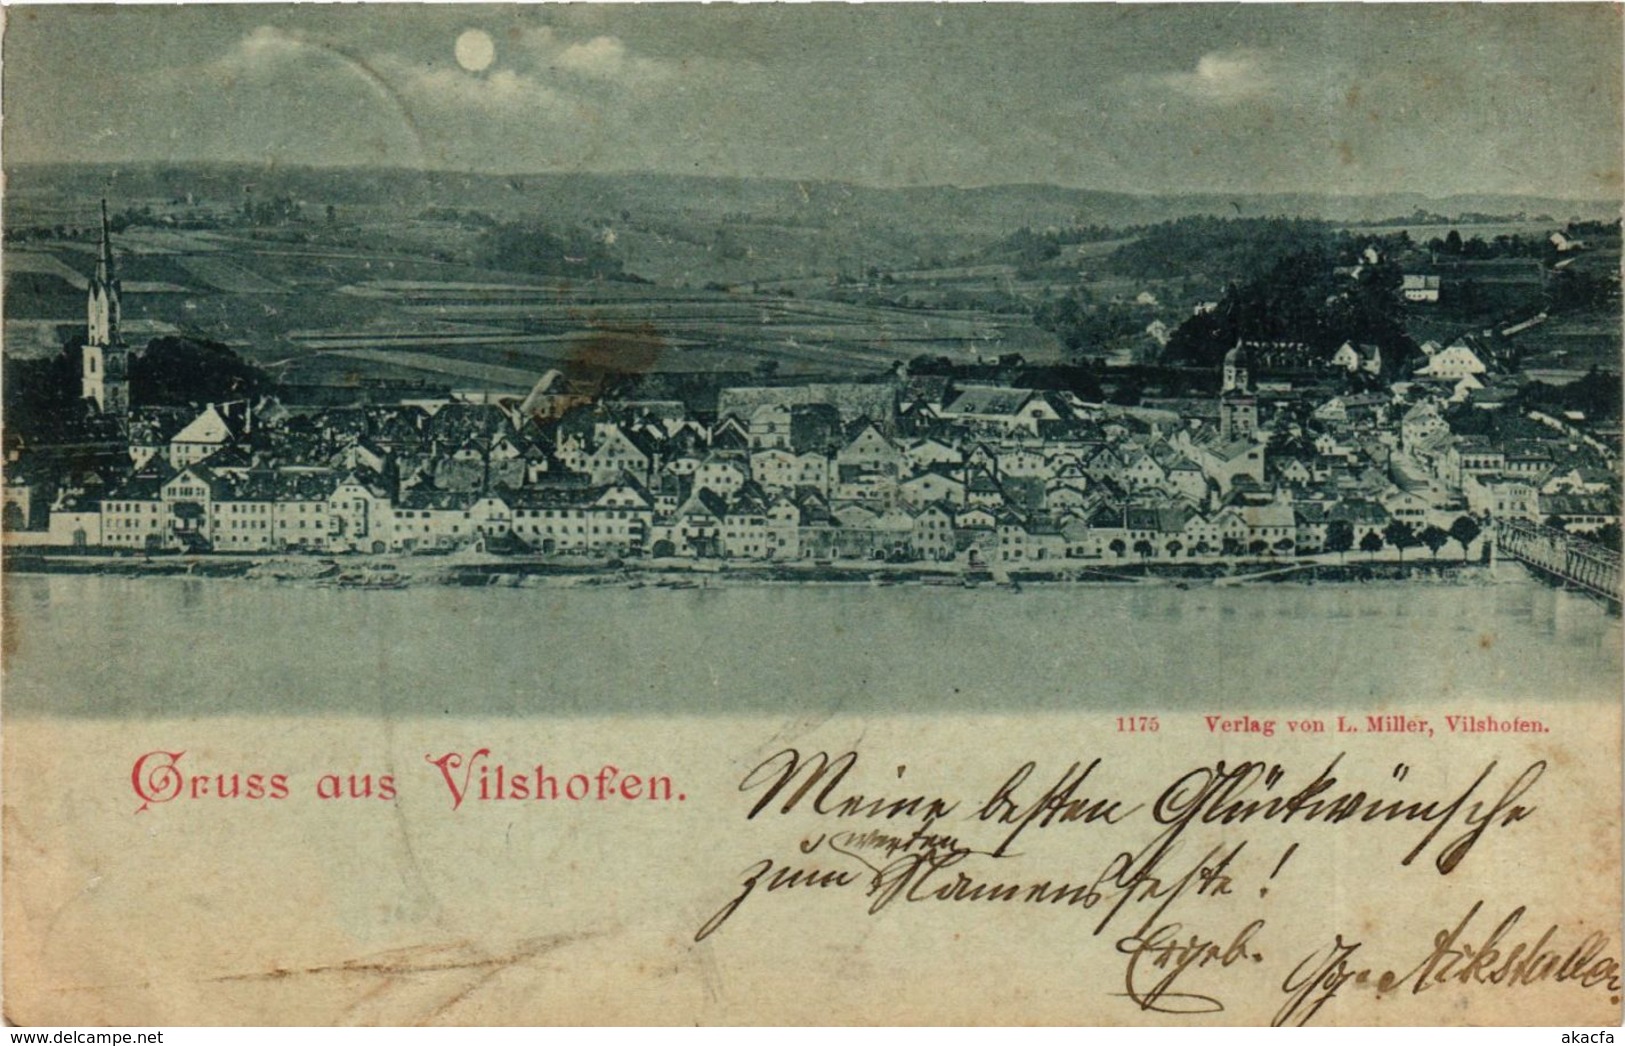 1175 Verlag von L. Miller, Vilshofen.
Gruss aus Vilshofen.
Meine besten Glückwünsche
werten
zum Namensfeste!
Ergeb.
www.delcampe.net
akacfa